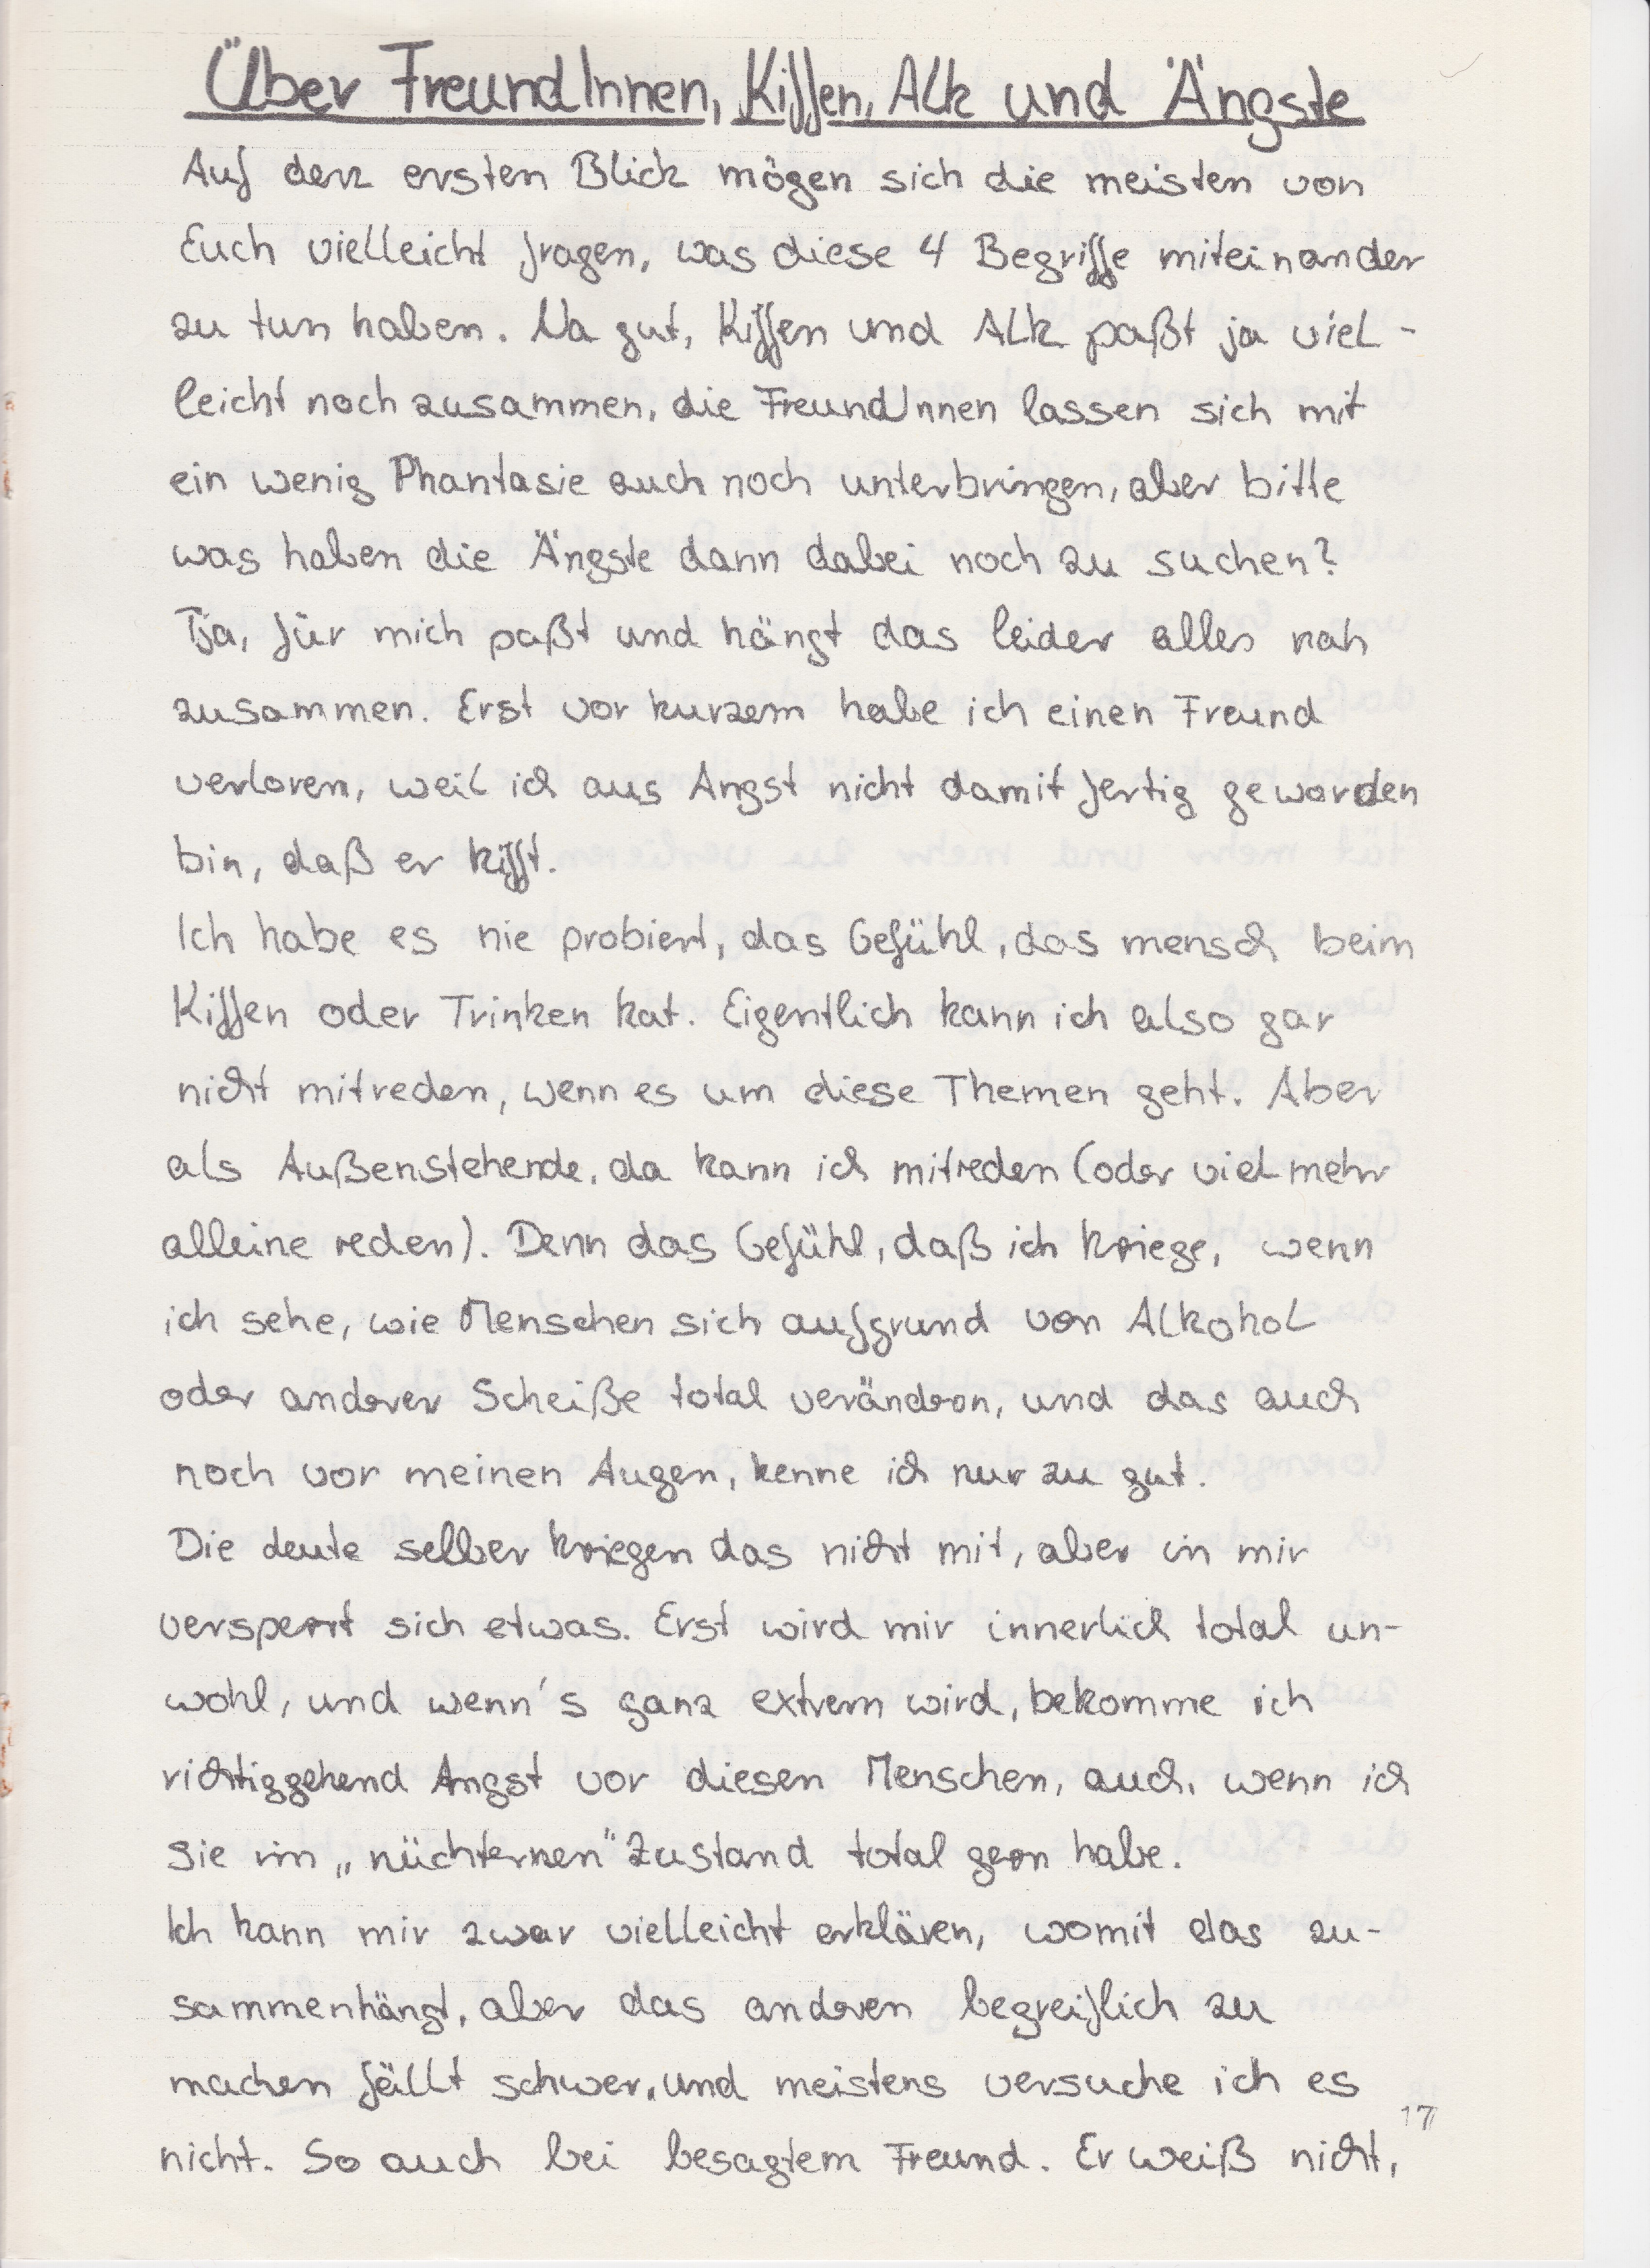 Über FreundInnen, Kiffen, Alk und Ängste
Auf den ersten Blick mögen sich die meisten von
Euch vielleicht fragen, was diese 4 Begriffe miteinander
zu tun haben. Na gut, Kiffen und Alk paßt ja viel-
leicht noch zusammen, die FreundInnen lassen sich mit
ein wenig Phantasie auch noch unterbringen, aber bitte
was haben die Ängste dann dabei noch zu suchen?
Tja, für mich paßt und hängt das leider alles nah
zusammen. Erst vor kurzem habe ich einen Freund
verloren, weil ich aus Angst nicht damit fertig geworden
bin, daß er kifft.
Ich habe es nie probiert, das Gefühl, das mensch beim
Kiffen oder Trinken hat. Eigentlich kann ich also gar
nicht mitreden, wenn es um diese Themen geht. Aber
als Außenstehende, da kann ich mitreden (oder viel mehr
alleine reden). Denn das Gefühl, daß ich kriege, wenn
ich sehe, wie Menschen sich aufgrund von Alkohol
oder anderer Scheiße total verändern, und das auch
noch vor meinen Augen, kenne ich nur zu gut.
Die Leute selber kriegen das nicht mit, aber in mir
versperrt sich etwas. Erst wird mir innerlich total un-
wohl, und wenn's ganz extrem wird, bekomme ich
richtiggehend Angst vor diesen Menschen, auch, wenn ich
sie im „nüchternen" Zustand total gern habe.
Ich kann mir zwar vielleicht erklären, womit das zu-
sammenhängt, aber das anderen begreiflich zu
machen fällt schwer, und meistens versuche ich es
nicht. So auch bei besagtem Freund. Er weiß nicht,
17